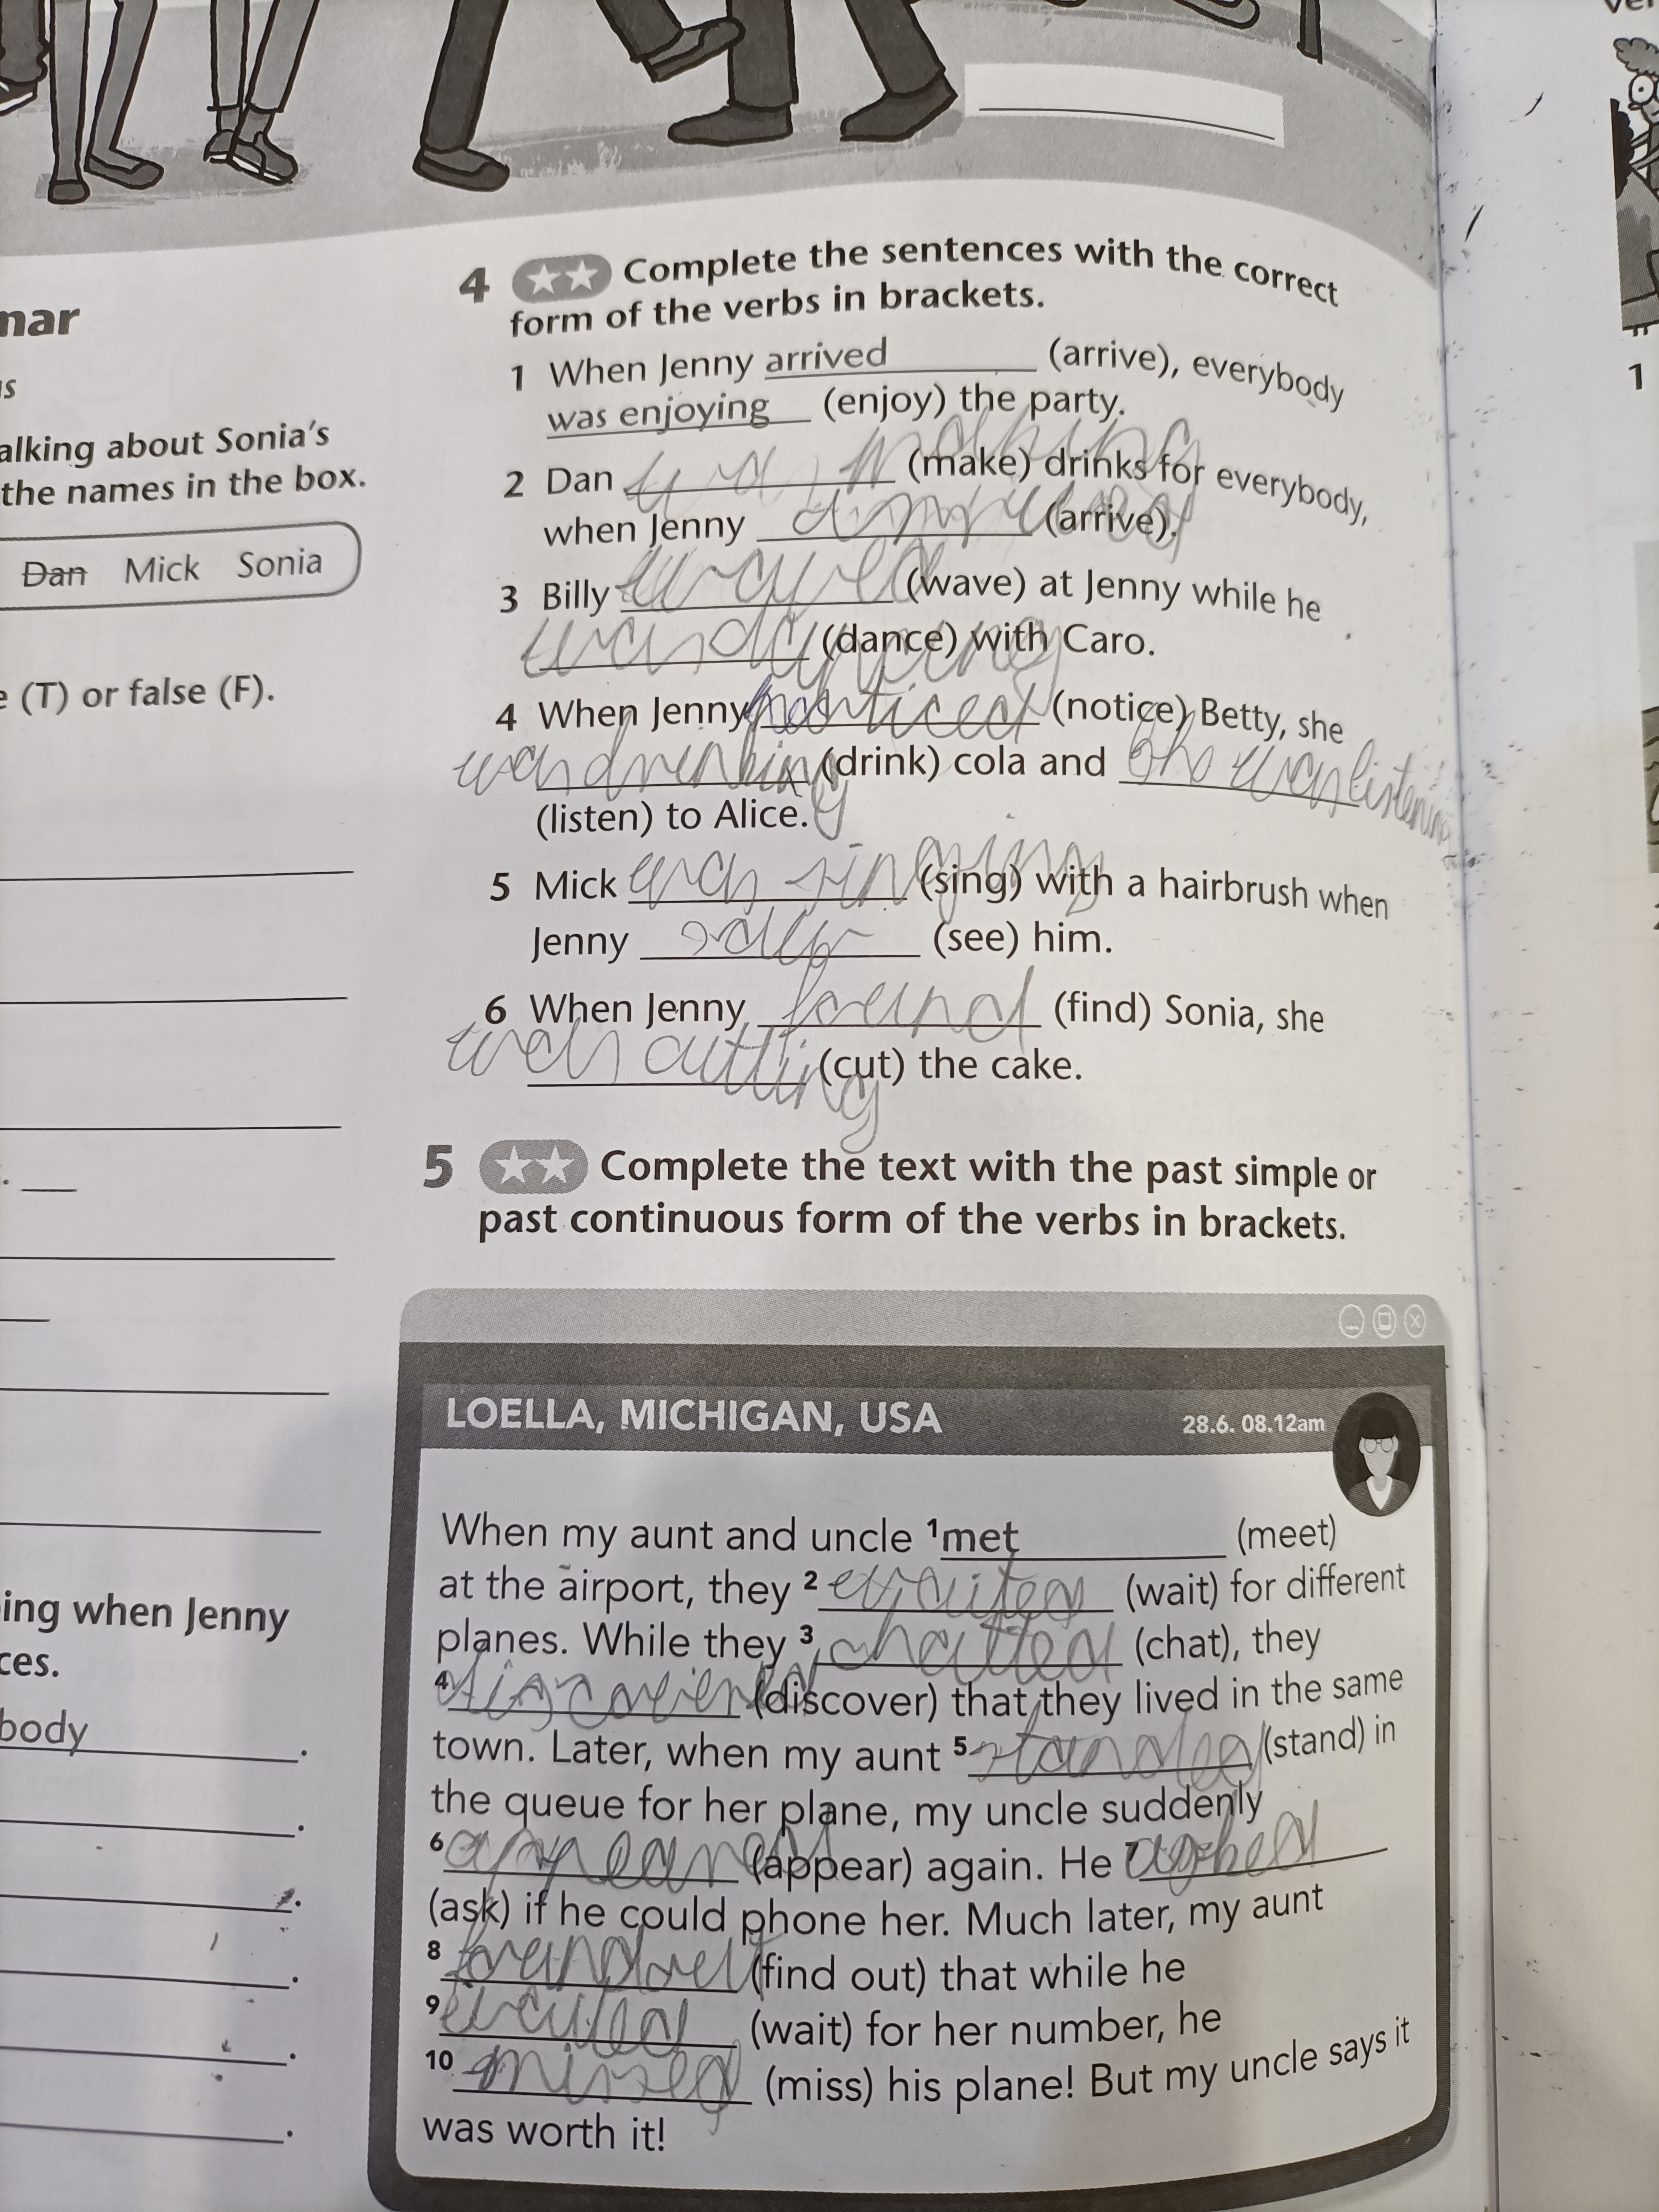 mar
alking about Sonia's
the names in the box.
Dan Mick Sonia
(T) or false (F).
ing when Jenny
ces.
body
4 Complete the sentences with the correct
form of the verbs in brackets.
1 When Jenny arrived (arrive), everybody
was enjoying (enjoy) the party.
2 Dan making (make) drinks for everybody,
when Jenny (arrive).
3 Billy waved (wave) at Jenny while he
was (dance) with Caro.
4 When Jenny noticed (notice) Betty, she
was drinking (drink) cola and was listening
(listen) to Alice.
5 Mick was singing (sing) with a hairbrush when
Jenny (see) him.
6 When Jenny found (find) Sonia, she
was cutting (cut) the cake.
5 Complete the text with the past simple or
past continuous form of the verbs in brackets.
LOELLA, MICHIGAN, USA 28.6. 08.12am
When my aunt and uncle 1 met (meet)
at the airport, they 2 waited (wait) for different
planes. While they 3 chatted (chat), they
4 (discover) that they lived in the same
town. Later, when my aunt 5 standed (stand) in
the queue for her plane, my uncle suddenly
6 appeared (appear) again. He 7 asked
(ask) if he could phone her. Much later, my aunt
8 found out (find out) that while he
9 waited (wait) for her number, he
10 missed (miss) his plane! But my uncle says it
was worth it!
1